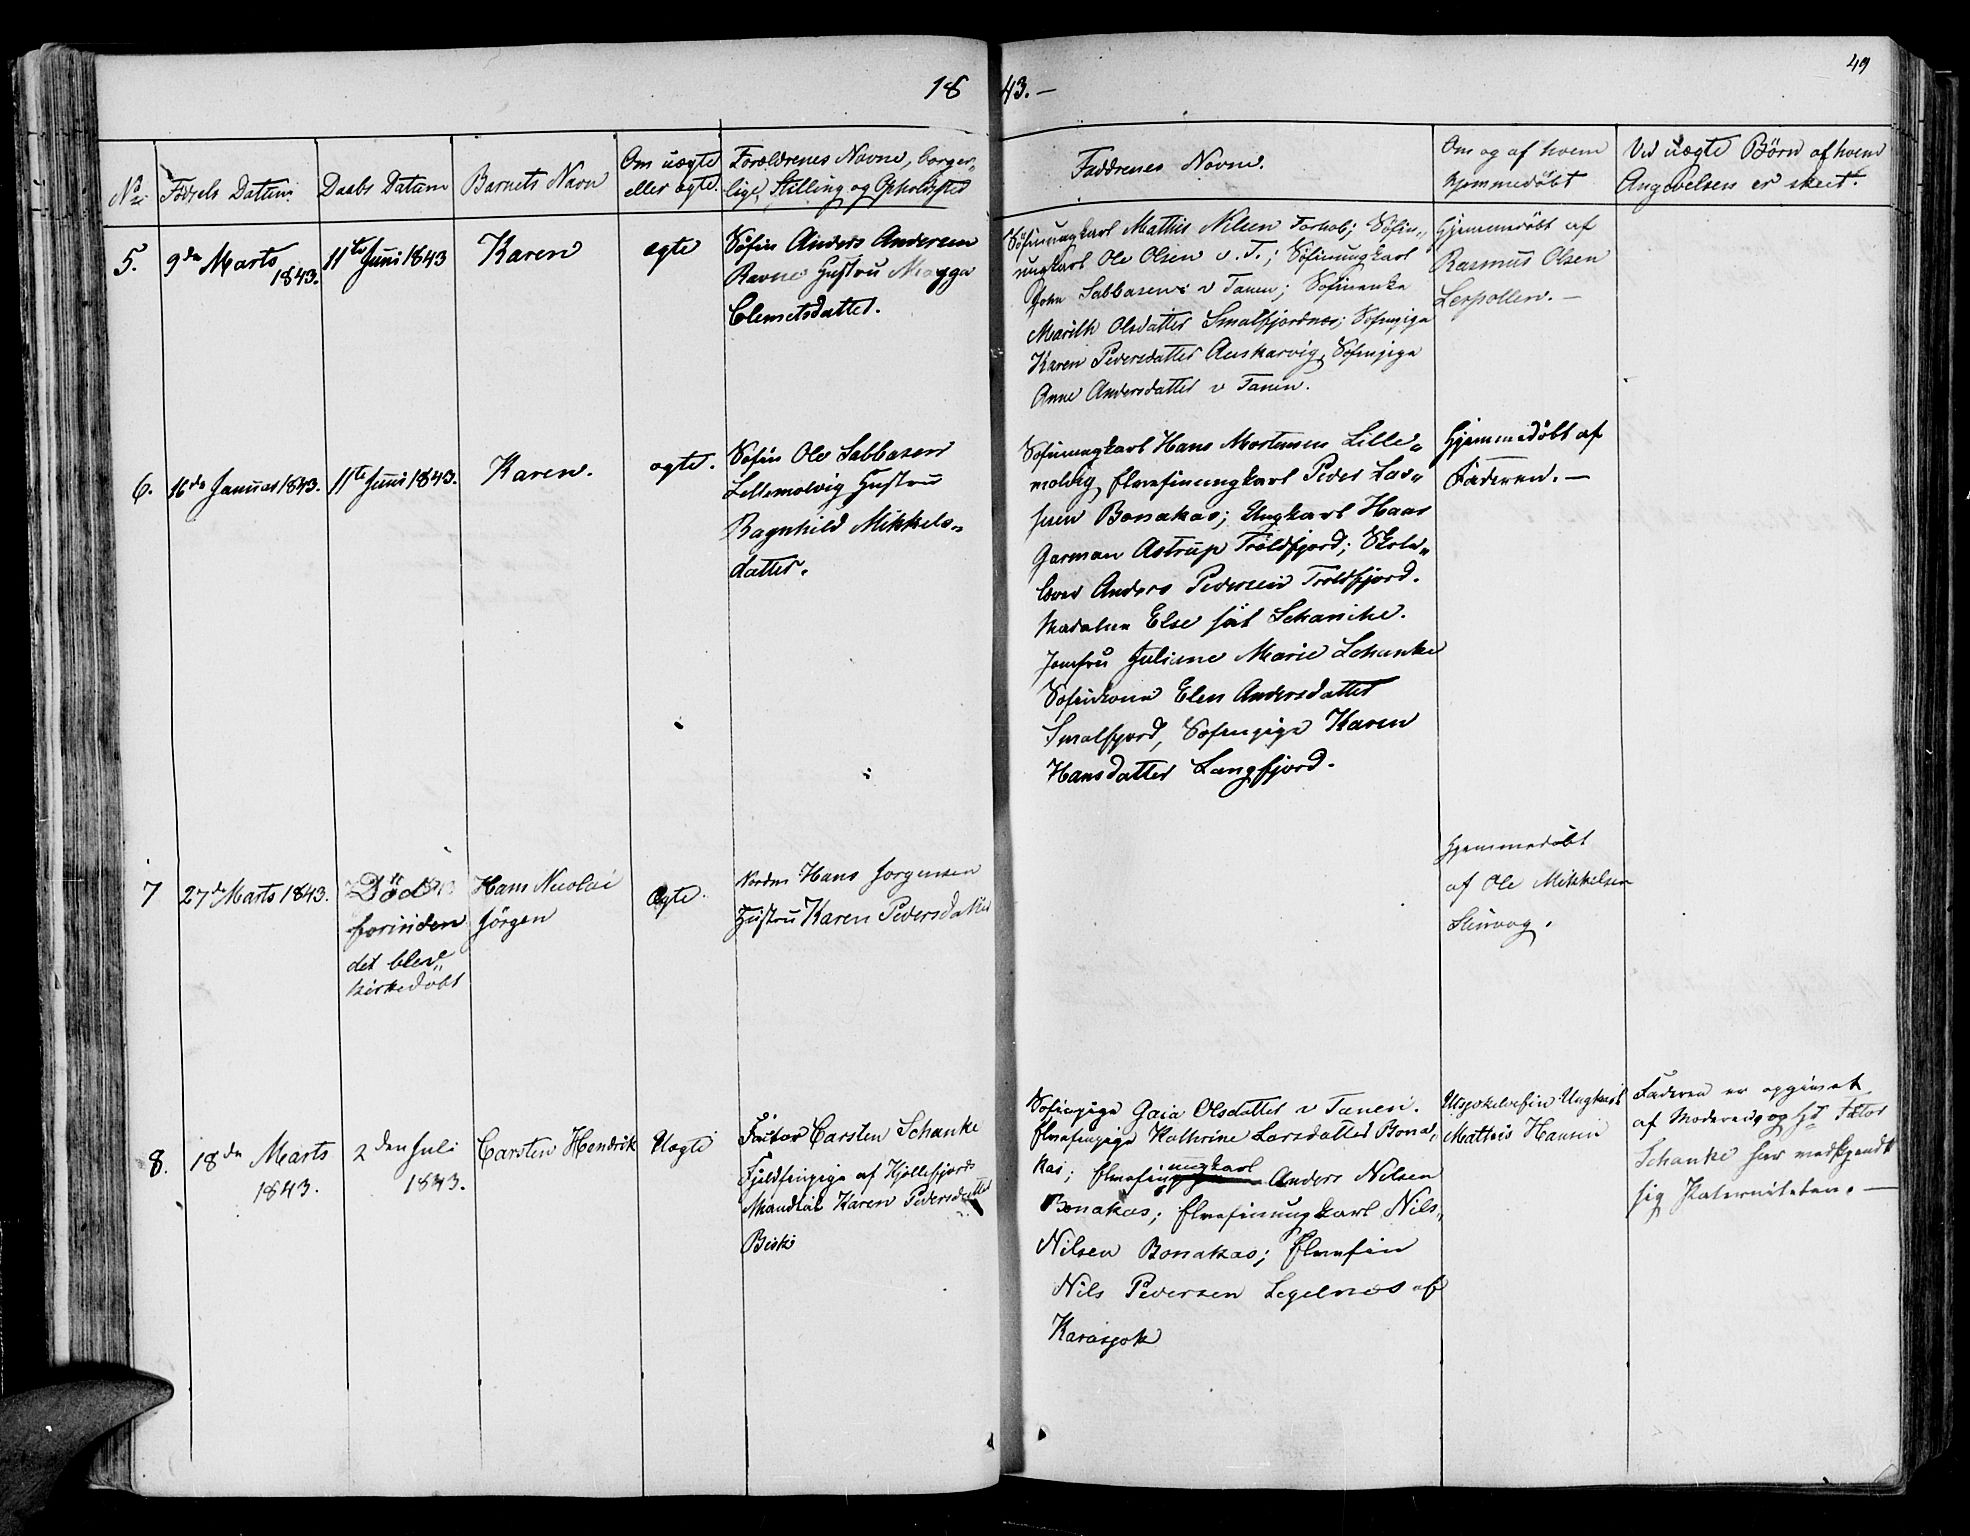 1843.—
49
No
Fødsels Datum.
Daabs Datum
Barnets Navn
Om uægte
eller ægte.
Forældrenes Navne, borger„
lige Stilling og Opholdsted
Faddrenes Navne.
Om og af hvem
hjemmedøbt
Ved uægte Börn af hvem
Angivelsen er skeet.
5.
9de Marts
1843.
11te Juni 1843
Karen
egte
Søfin Anders Andersen
Ravne Hustru Magga
Clemetsdatter.
Söfinungkarl Mathis Nilsen Torhol; Söfin„
ungkarl Ole Olsen v. T.; Söfinungkarl
John Sabbasen v Tanen; Söfinenke
Marith Olsdatter Smalfjordnæs; Söfinpige
Karen Pedersdatter Auskarvig, Söfinpige
Anne Andersdatter v Tanen.
Hjemmedøbt af
Rasmus Olsen
Lerpollen.—
6.
16de Januar 1843.
11te Juni 1843.
Karen.
egte.
Søfin Ole Sabbasen
Lillemolvig Hustru
Ragnhild Mikkels„
datter.
Söfinungkarl Hans Mortensen Lille„
molvig, Elvefinungkarl Peder Lar„
sen Bonakas; Ungkarl Haar
Garman Astrup Troldfjord; Skole„
lærer Anders Pedersen Troldfjord.
Madalne Else föt Schancke.
Jomfru Juliane Marie Schanke
Søfinkone Elen Andersdatter
Smalfjord, Søfinpige Karen
Hansdatter Langfjord.
Hjemmedøbt af
Faderen.—
7
27de Marts 1843.
Död
forinden
det blev
kirkedøbt
Hans Nicolai
Jörgen
Ægte.
Nordm Hans Jorgensen
Hustru Karen Pedersdatter
Hjemmedøbt
af Ole Mikkelsen
Steinvag.
8.
18de Marts
1843.
2den Juli
1843.
Carsten Hendrik
Uægte
Factor Carsten Schanke
Fjeldfinpige af Kjøllefjords
Mandtal Karen Pedersdatter
Biski
Søfinpige Gaia Olsdatter v Tanen.
Elvefinpige Kathrine Larsdatter Bona„
kas; Elvefinungkarl Anders Nilsen
Bonakas; Elvefinungkarl Nils„
Nilsen Bonakas; Elvefin
Nils Pedersen Legelnæs af
Karasjok
Utsjokelvefin Ungkarl
Matthis Hansen
Faderen er opgivet
af Moderen, og Hr Factor
Schanke har vedkjendt
sig Paterniteten.—